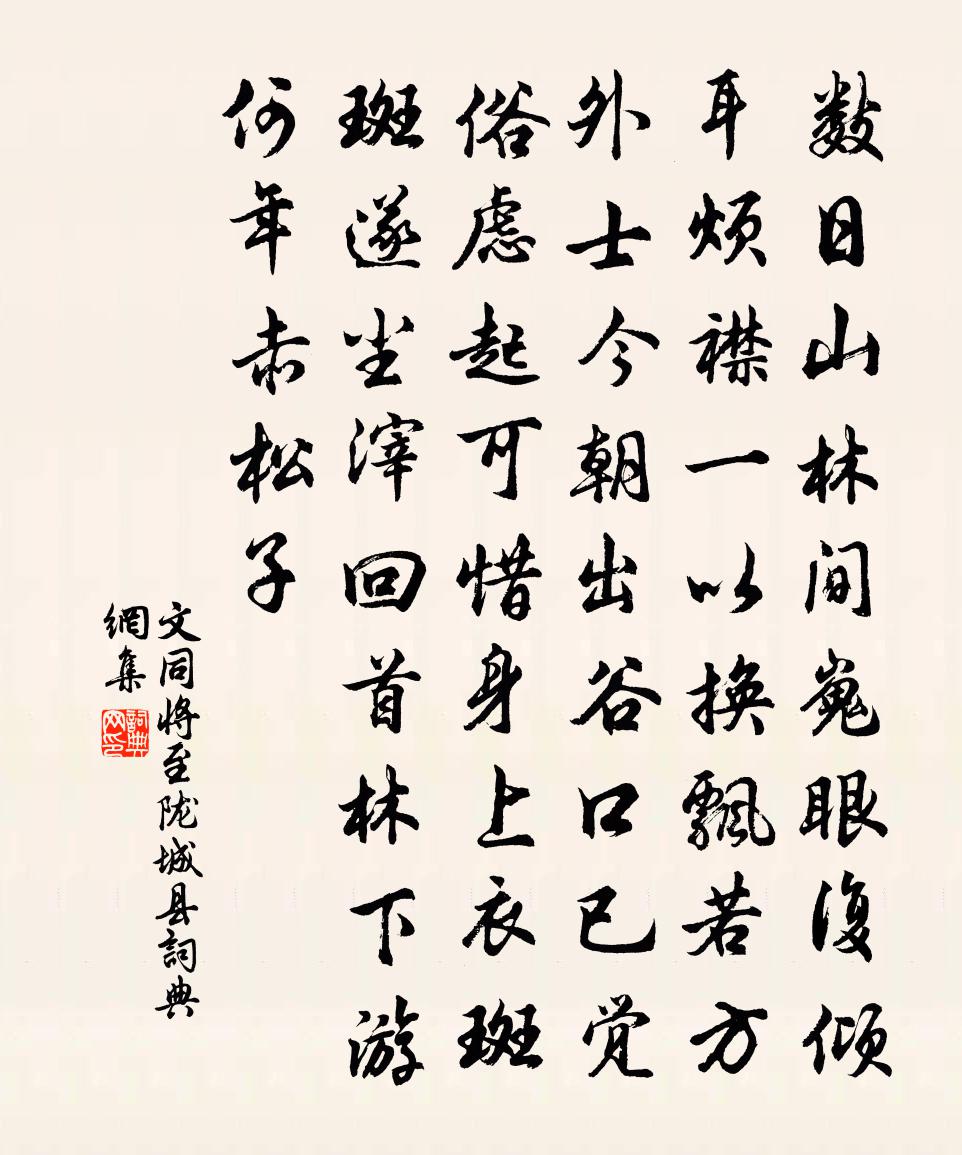 数日山林间嵬眼復倾
耳烦襟一以换飘若方
外士今朝出谷口已觉
俗虑起可惜身上衣斑
斑遂尘滓回首林下游
何年赤松子
文同将至陇城县詞典
網集
詞典
网印